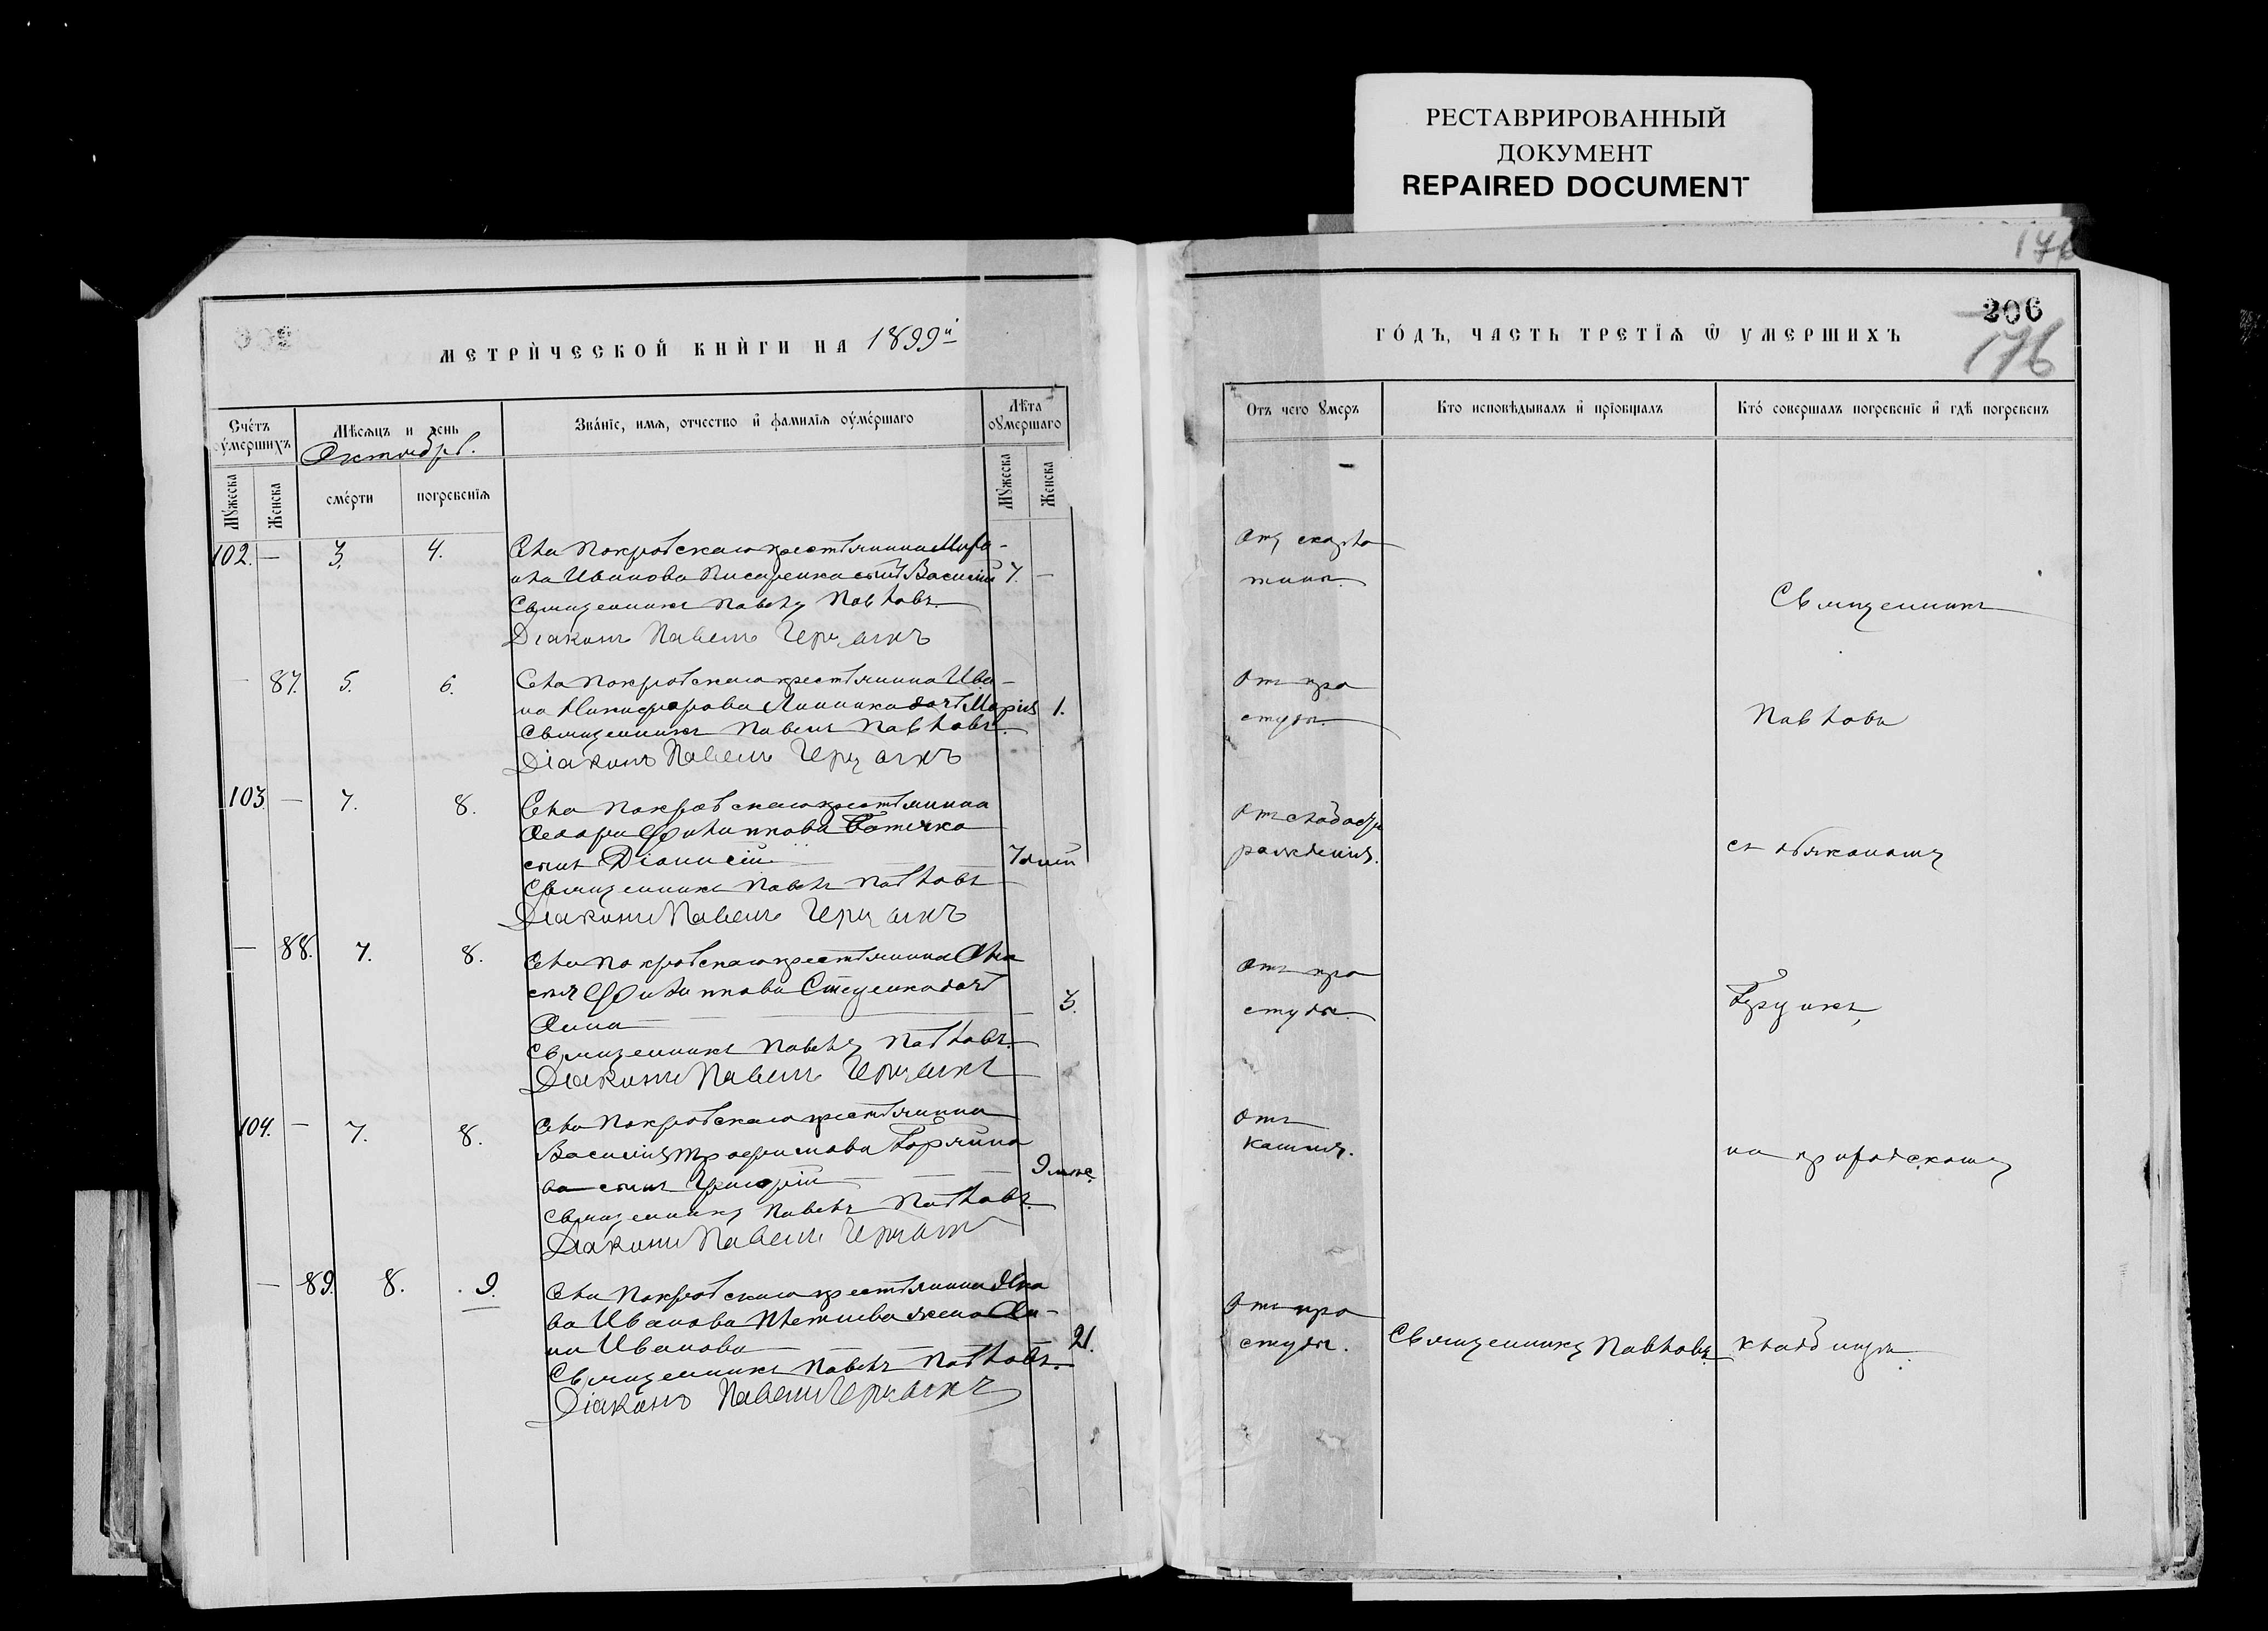 РЕСТАВРИРОВАННЫЙ
ДОКУМЕНТ
REPAIRED DOCUMENT
176
206
176
МЕТРИЧЕСКОЙ КНИГИ НА 1899й
ГОДЪ, ЧАСТЬ ТРЕТІЯ Ѿ УМЕРШИХЪ
Счетъ умершихъ
Мѣсяцъ и день
Октябрь.
Званіе, имя, отчество и фамилія умершаго
Лѣта умершаго
Отъ чего умеръ
Кто исповѣдывалъ и пріобщалъ
Кто совершалъ погребеніе и гдѣ погребенъ
Мужеска
Женска
смерти
погребенія
Мужеска
Женска
102. — 3. 4. Села Покровскаго крестьянина
Иванова Писаренка сынъ Василій 7. —
Священникъ Павелъ Павловъ
Діаконъ Павелъ
Отъ скарла
тины.
Священникъ
— 87. 5. 6. Села Покровскаго крестьянина Ива-
на Никифорова дочь Марія 1.
Священникъ Павелъ Павловъ.
Діаконъ Павелъ
Отъ про
студы.
Павловъ
103. — 7. 8. Села Покровскаго крестьянина
Филиппова
сынъ Діонисій 7 дней
Священникъ Павелъ Павловъ
Діаконъ Павелъ
рожденія.
съ діакономъ
— 88. 7. 8. Села Покровскаго крестьянина
Филиппова дочь
Анна 3.
Священникъ Павелъ Павловъ.
Діаконъ Павелъ
Отъ про
студы.
104. — 7. 8. Села Покровскаго крестьянина
Василія Трофимова Горяйно
ва сынъ Григорій 9 мѣс.
Священникъ Павелъ Павловъ.
Діаконъ Павелъ
Отъ
кашля.
на приходскомъ
— 89. 8. 9. Села Покровскаго крестьянина Яко
ва Иванова жена Ан-
на Иванова 21.
Священникъ Павелъ Павловъ.
Діаконъ Павелъ
Отъ про
студы.
Священникъ Павловъ
кладбищѣ.